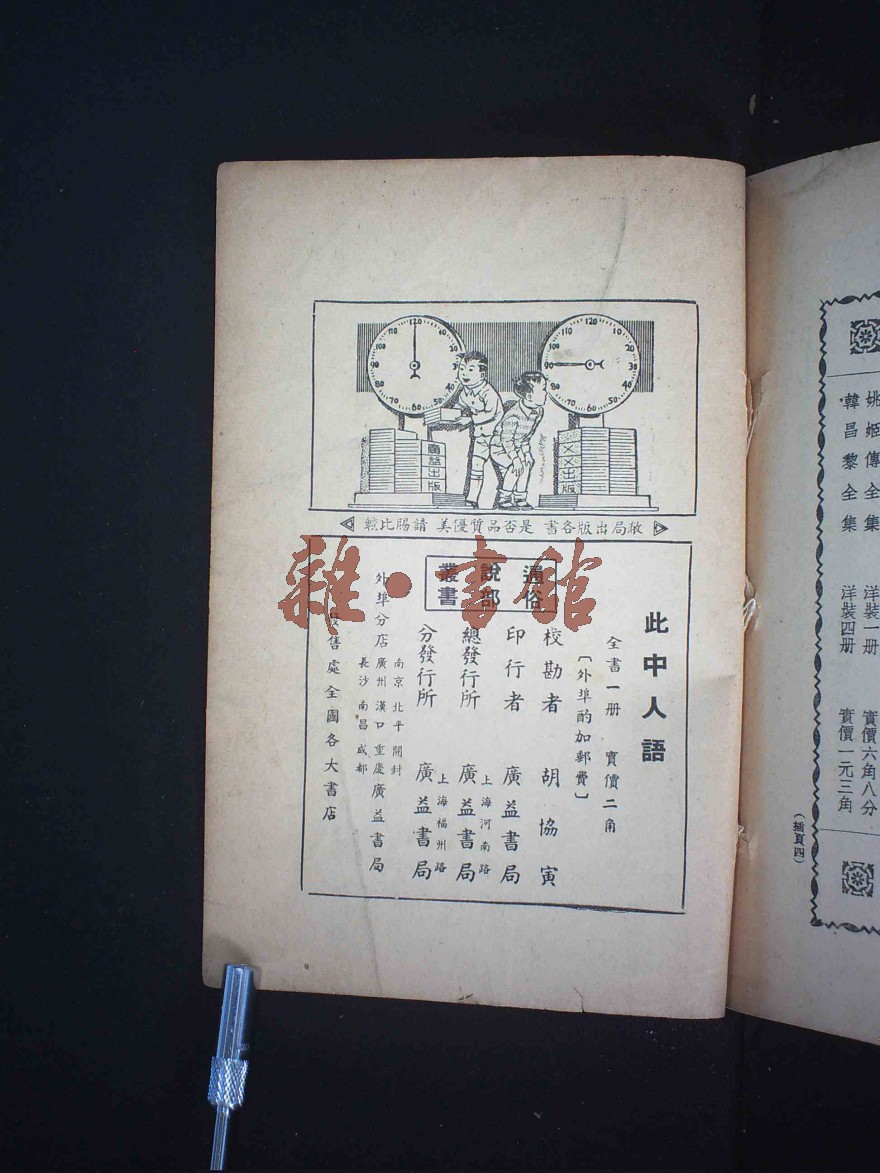 120
110
100
90
80
70
60
50
40
30
20
120
110
100
90
80
70
60
50
40
30
20
10
廣益出版
××出版
敝局出版各書 是否品質優美 請賜比較
雜·書館
通俗
說部
叢書
此中人語
全書一册 實價二角
〔外埠酌加郵費〕
校勘者 胡協寅
印行者 廣益書局
總發行所 上海河南路 廣益書局
分發行所 上海福州路 廣益書局
外埠分店 南京 北平 開封 廣州 漢口 重慶 長沙 南昌 成都 廣益書局
發售處全國各大書店
姚姬傳全集 洋裝一册 實價六角八分
韓昌黎全集 洋裝四册 實價一元三角
(插頁四)